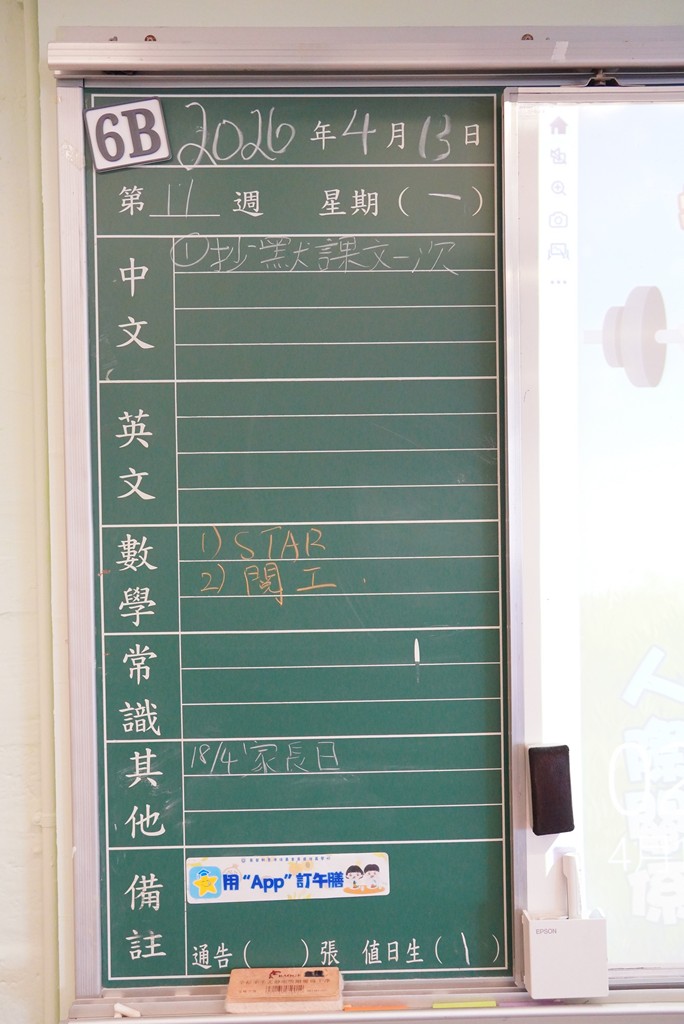 6B
2026年4月13日
第 11 週 星期(一)
中文
①抄默課文一次
英文
數學
1) STAR
2) 閱工.
常識
其他
18/4 家長日
備註
用“App”訂午膳
通告( )張 值日生(1)
EPSON